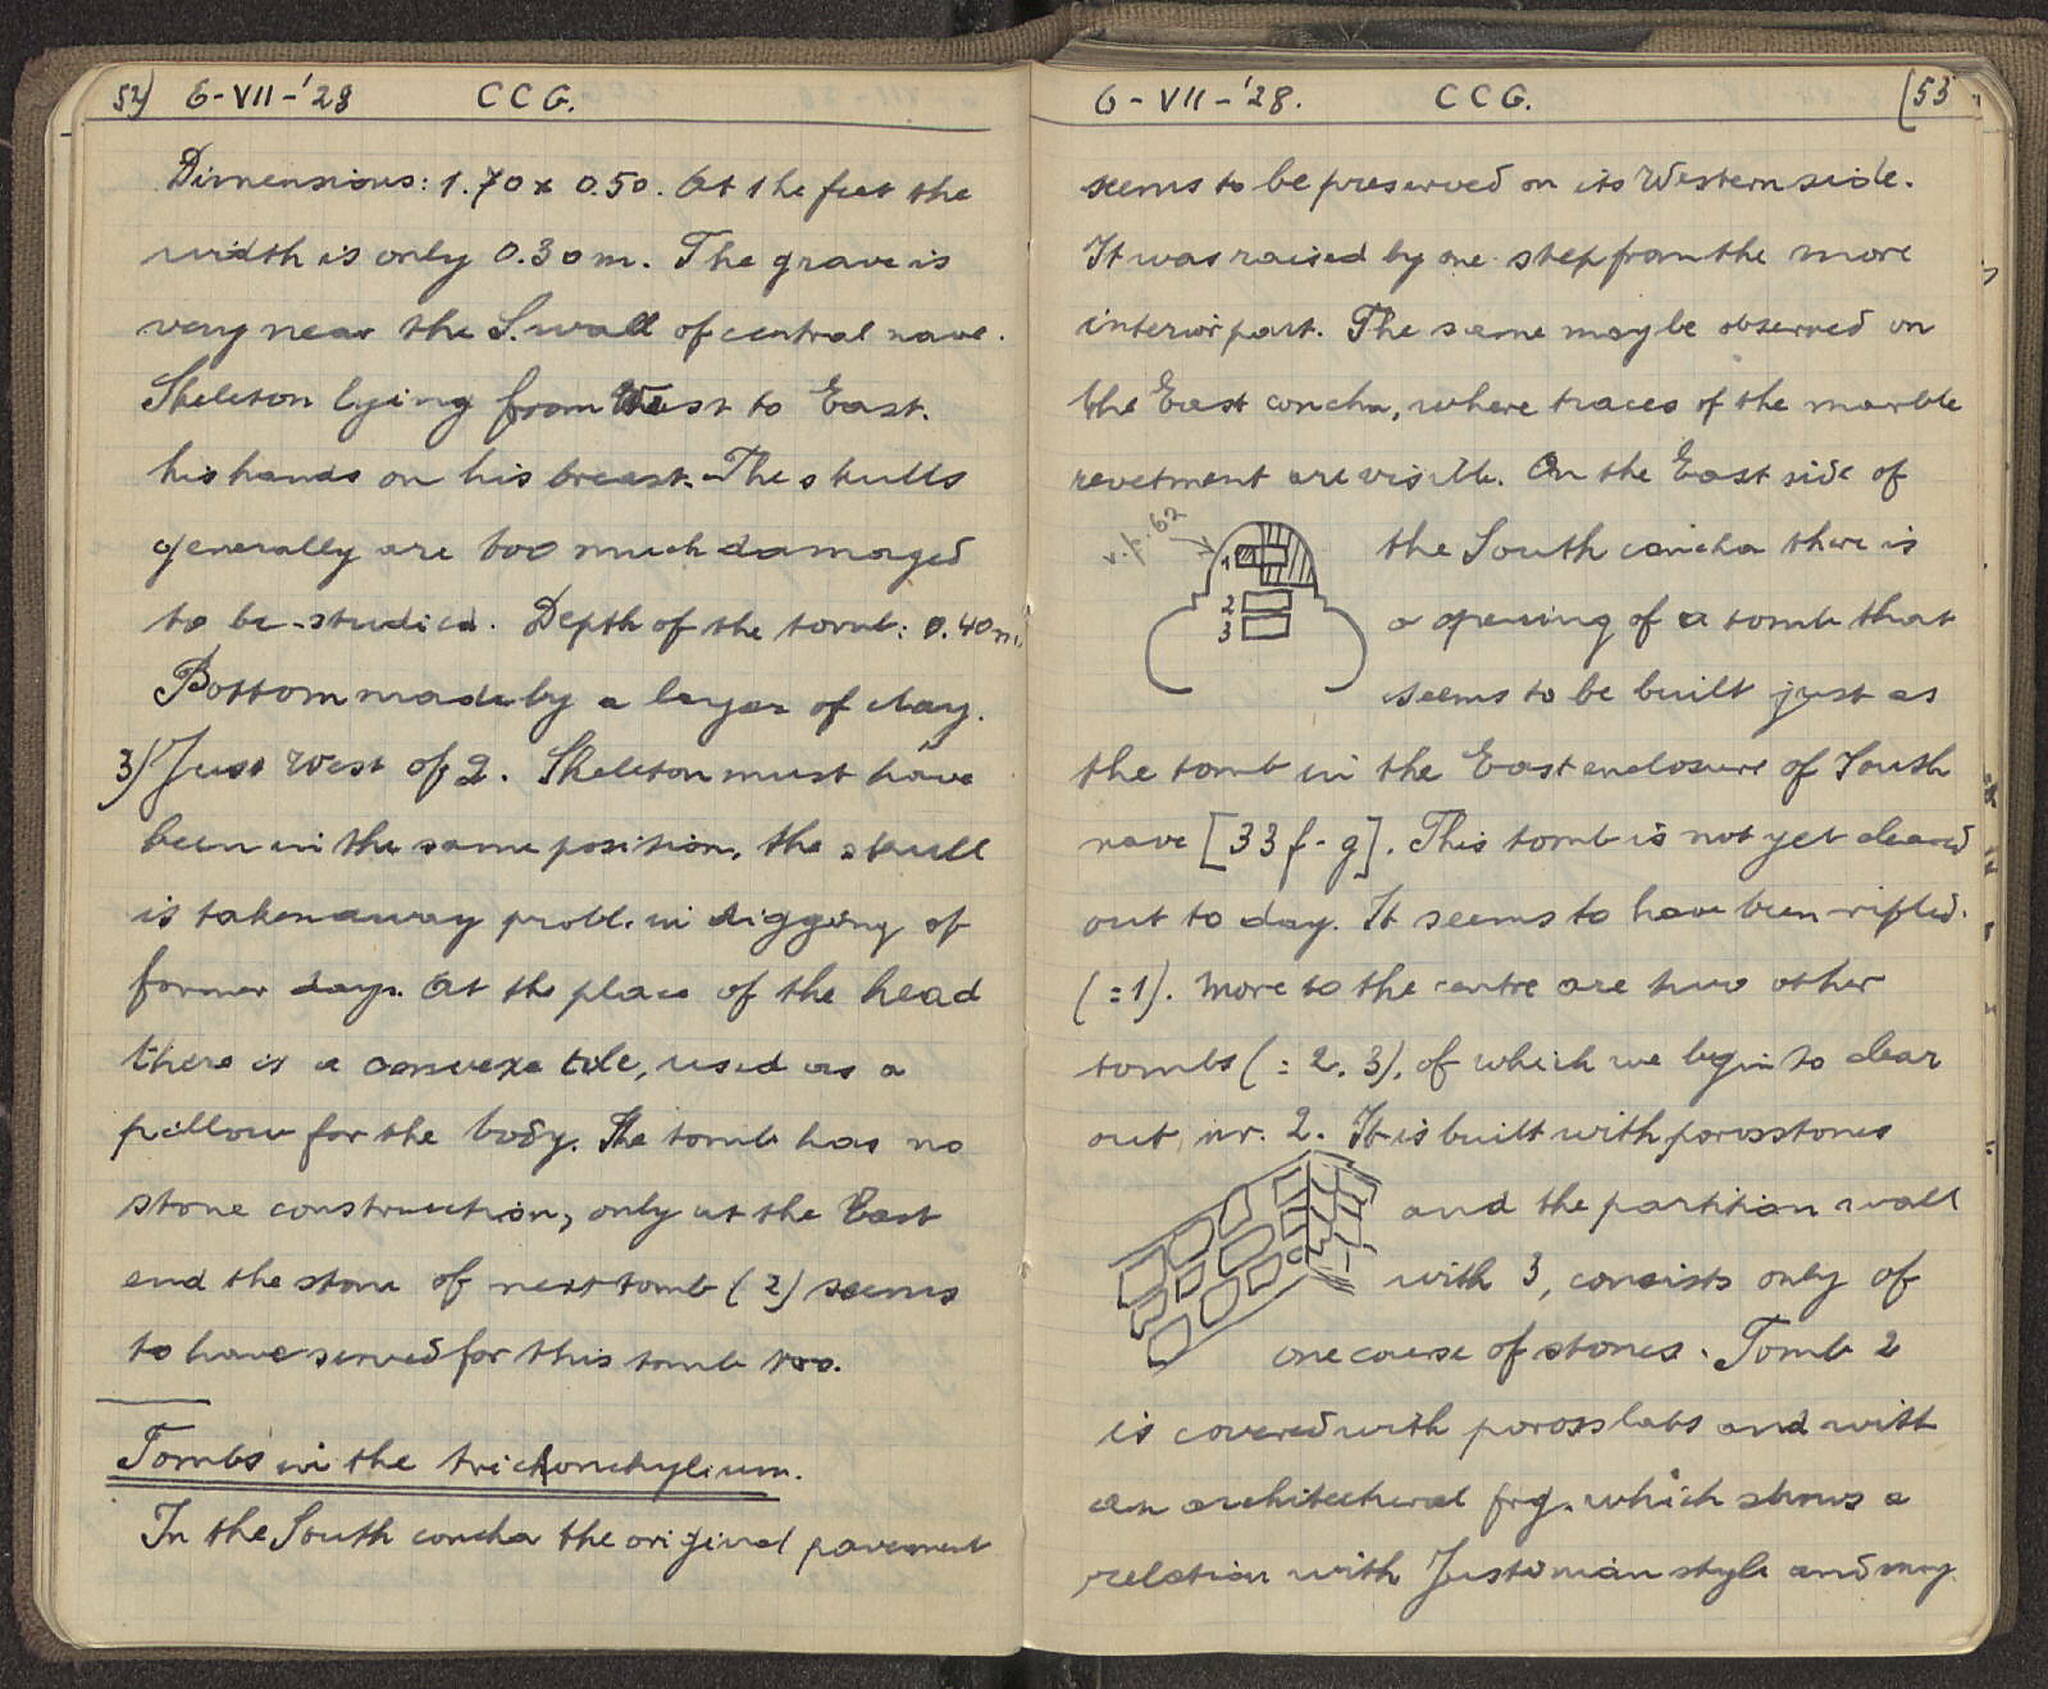 52) 6-VII-'28 CCG.
Dimensions: 1.70 x 0.50. At the feet the
width is only 0.30 m. The grave is
very near the S. wall of central nave.
Skeleton lying from West to East.
his hands on his breast. The skulls
generally are too much damaged
to be studied. Depth of the tomb: 0.40 m.
Bottom made by a layer of clay.
3) Just West of 2. Skeleton must have
been in the same position, the skull
is taken away probl. in digging of
former days. At the place of the head
there is a convexe tile, used as a
pillow for the body. The tomb has no
stone construction, only at the East
end the stone of next tomb (2) seems
to have served for this tomb too.
Tombs in the trichonchylium.
In the South concha the original pavement
6-VII-'28. CCG. (53
seems to be preserved on its Western side.
It was raised by one step from the more
interior part. The same may be observed on
the East concha, where traces of the marble
revetment are visible. On the East side of
v. p. 62
1
2
3
the South concha there is
a opening of a tomb that
seems to be built just as
the tomb in the East enclosure of South
nave [33 f-g]. This tomb is not yet cleared
out to day. It seems to have been rifled.
(=1). More to the centre are two other
tombs (= 2. 3), of which we begin to clear
out nr. 2. It is built with porosstones
and the partition wall
with 3, consists only of
one course of stones. Tomb 2
is covered with porosslabs and with
an architectural frg. which shows a
relation with Justinian style and may